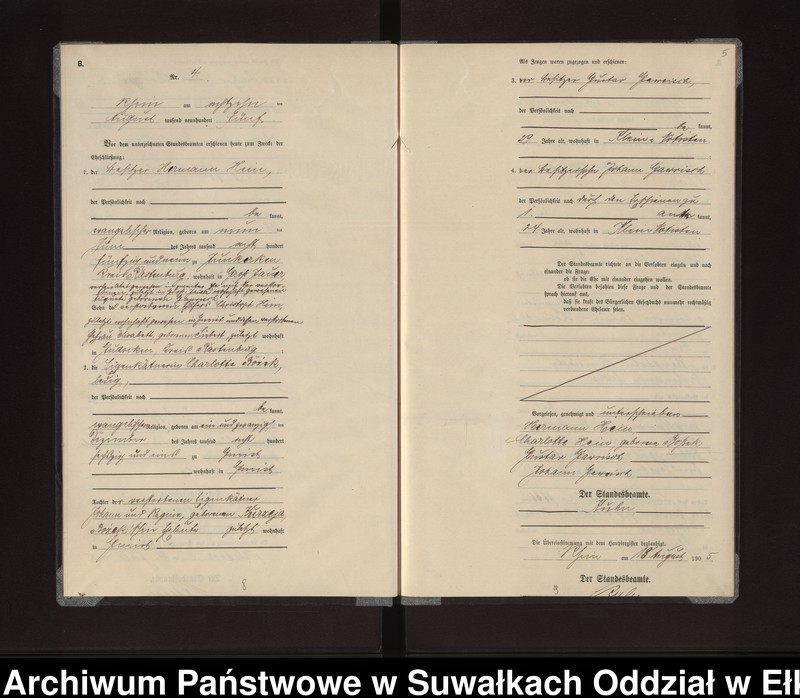 B.
Nr. 4
Rhein am achtzehn ten
August tausend neunhundert fünf
Vor dem unterzeichneten Standesbeamten erschienen heute zum Zwecke der
Eheschließung:
1. der Besitzer Hermann Hein,
der Persönlichkeit nach
be kannt,
evangelischer Religion, geboren am neun ten
Juni des Jahres tausend acht hundert
fünfzig und neun zu Junkerken
Kreis Rastenburg, wohnhaft in Groß
Sohn des verstorbenen Christoph Hein
zuletzt wohnhaft gewesen in und dessen verstorbenen
Ehefrau geborenen zuletzt wohnhaft
in Kreis Rastenburg ;
2. die Eigenkätnerin Charlotte Bozek,
ledig,
der Persönlichkeit nach
be kannt,
evangelischer Religion, geboren am ein und zwanzig ten
Dezember des Jahres tausend acht hundert
sechzig und eins zu Gneist
wohnhaft in Gneist
Tochter der verstorbenen Eigenkätner
Johann und Regine, geborenen
Bozek'schen Eheleute zuletzt wohnhaft
in Gneist
8
5
Als Zeugen waren zugezogen und erschienen:
3. der Besitzer Gustav
der Persönlichkeit nach
be kannt,
29 Jahre alt, wohnhaft in Klein Notisten
;
4. der Besitzersohn Johann
der Persönlichkeit nach durch den Erschienenen zu
1. aner kannt,
24 Jahre alt, wohnhaft in Klein Notisten
Der Standesbeamte richtete an die Verlobten einzeln und nach
einander die Frage:
ob sie die Ehe mit einander eingehen wollen.
Die Verlobten bejahten diese Frage und der Standesbeamte
sprach hierauf aus,
daß sie kraft des Bürgerlichen Gesetzbuchs nunmehr rechtmäßig
verbundene Eheleute seien.
Vorgelesen, genehmigt und unterschrieben
Hermann Hein
Charlotte Hein geborene Bozek
Gustav
Johann
Der Standesbeamte.
Die Übereinstimmung mit dem Hauptregister beglaubigt.
Rhein am 18 August 190 5
Der Standesbeamte.
9
Archiwum Państwowe w Suwałkach Oddział w Ełk